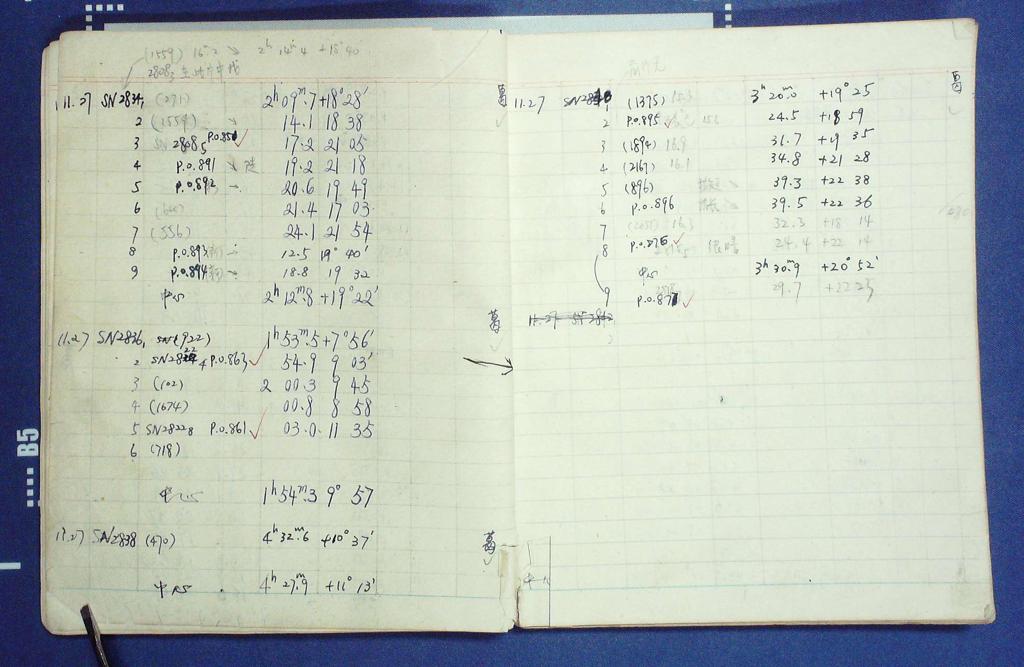 (1559) 16.2 2ʰ 14ᵐ.4 +18°40
11.27 SN2834, (271) 2ʰ09ᵐ.7 +18°28′ 葛
2 (1559) 14.1 18 38
3 SN28085 P.O.850 ✓ 17.2 21 05
4 P.O.891 19.2 21 18
5 P.O.892 20.6 19 49
6 21.4 17 03
7 (556) 24.1 21 54
8 P.O.893 12.5 19° 40′
9 P.O.894 18.8 19 32
中心 2ʰ12ᵐ.8 +19°22′
11.27 SN2836, SN(922) 1ʰ53ᵐ.5 +7°56′ 葛
2 P.O.863 ✓ 54.9 9 03′
3 (102) 2 00.3 9 45
4 (1674) 00.8 8 58
5 SN28228 P.O.861 ✓ 03.0 11 35
6 (718)
中心 1ʰ54ᵐ.3 9° 57
11.27 SN2838 (470) 4ʰ32ᵐ.6 +10°37′ 葛
中心 4ʰ27ᵐ.9 +11°13′
11.27 (1375) 3ʰ20ᵐ.0 +19°25 葛
2 P.O.895 ✓ 24.5 +18 59
3 (1894) 16.9 31.7 +19 35
4 (2167) 16.1 34.8 +21 28
5 (896) 39.3 +22 38
6 P.O.896 39.5 +22 36
7 16.3 32.3 +18 14
8 P.O.276 ✓ 很暗 24.4 +22 14
中心 3ʰ30ᵐ.9 +20°52′
9 ✓ 29.7 +22 25
B5